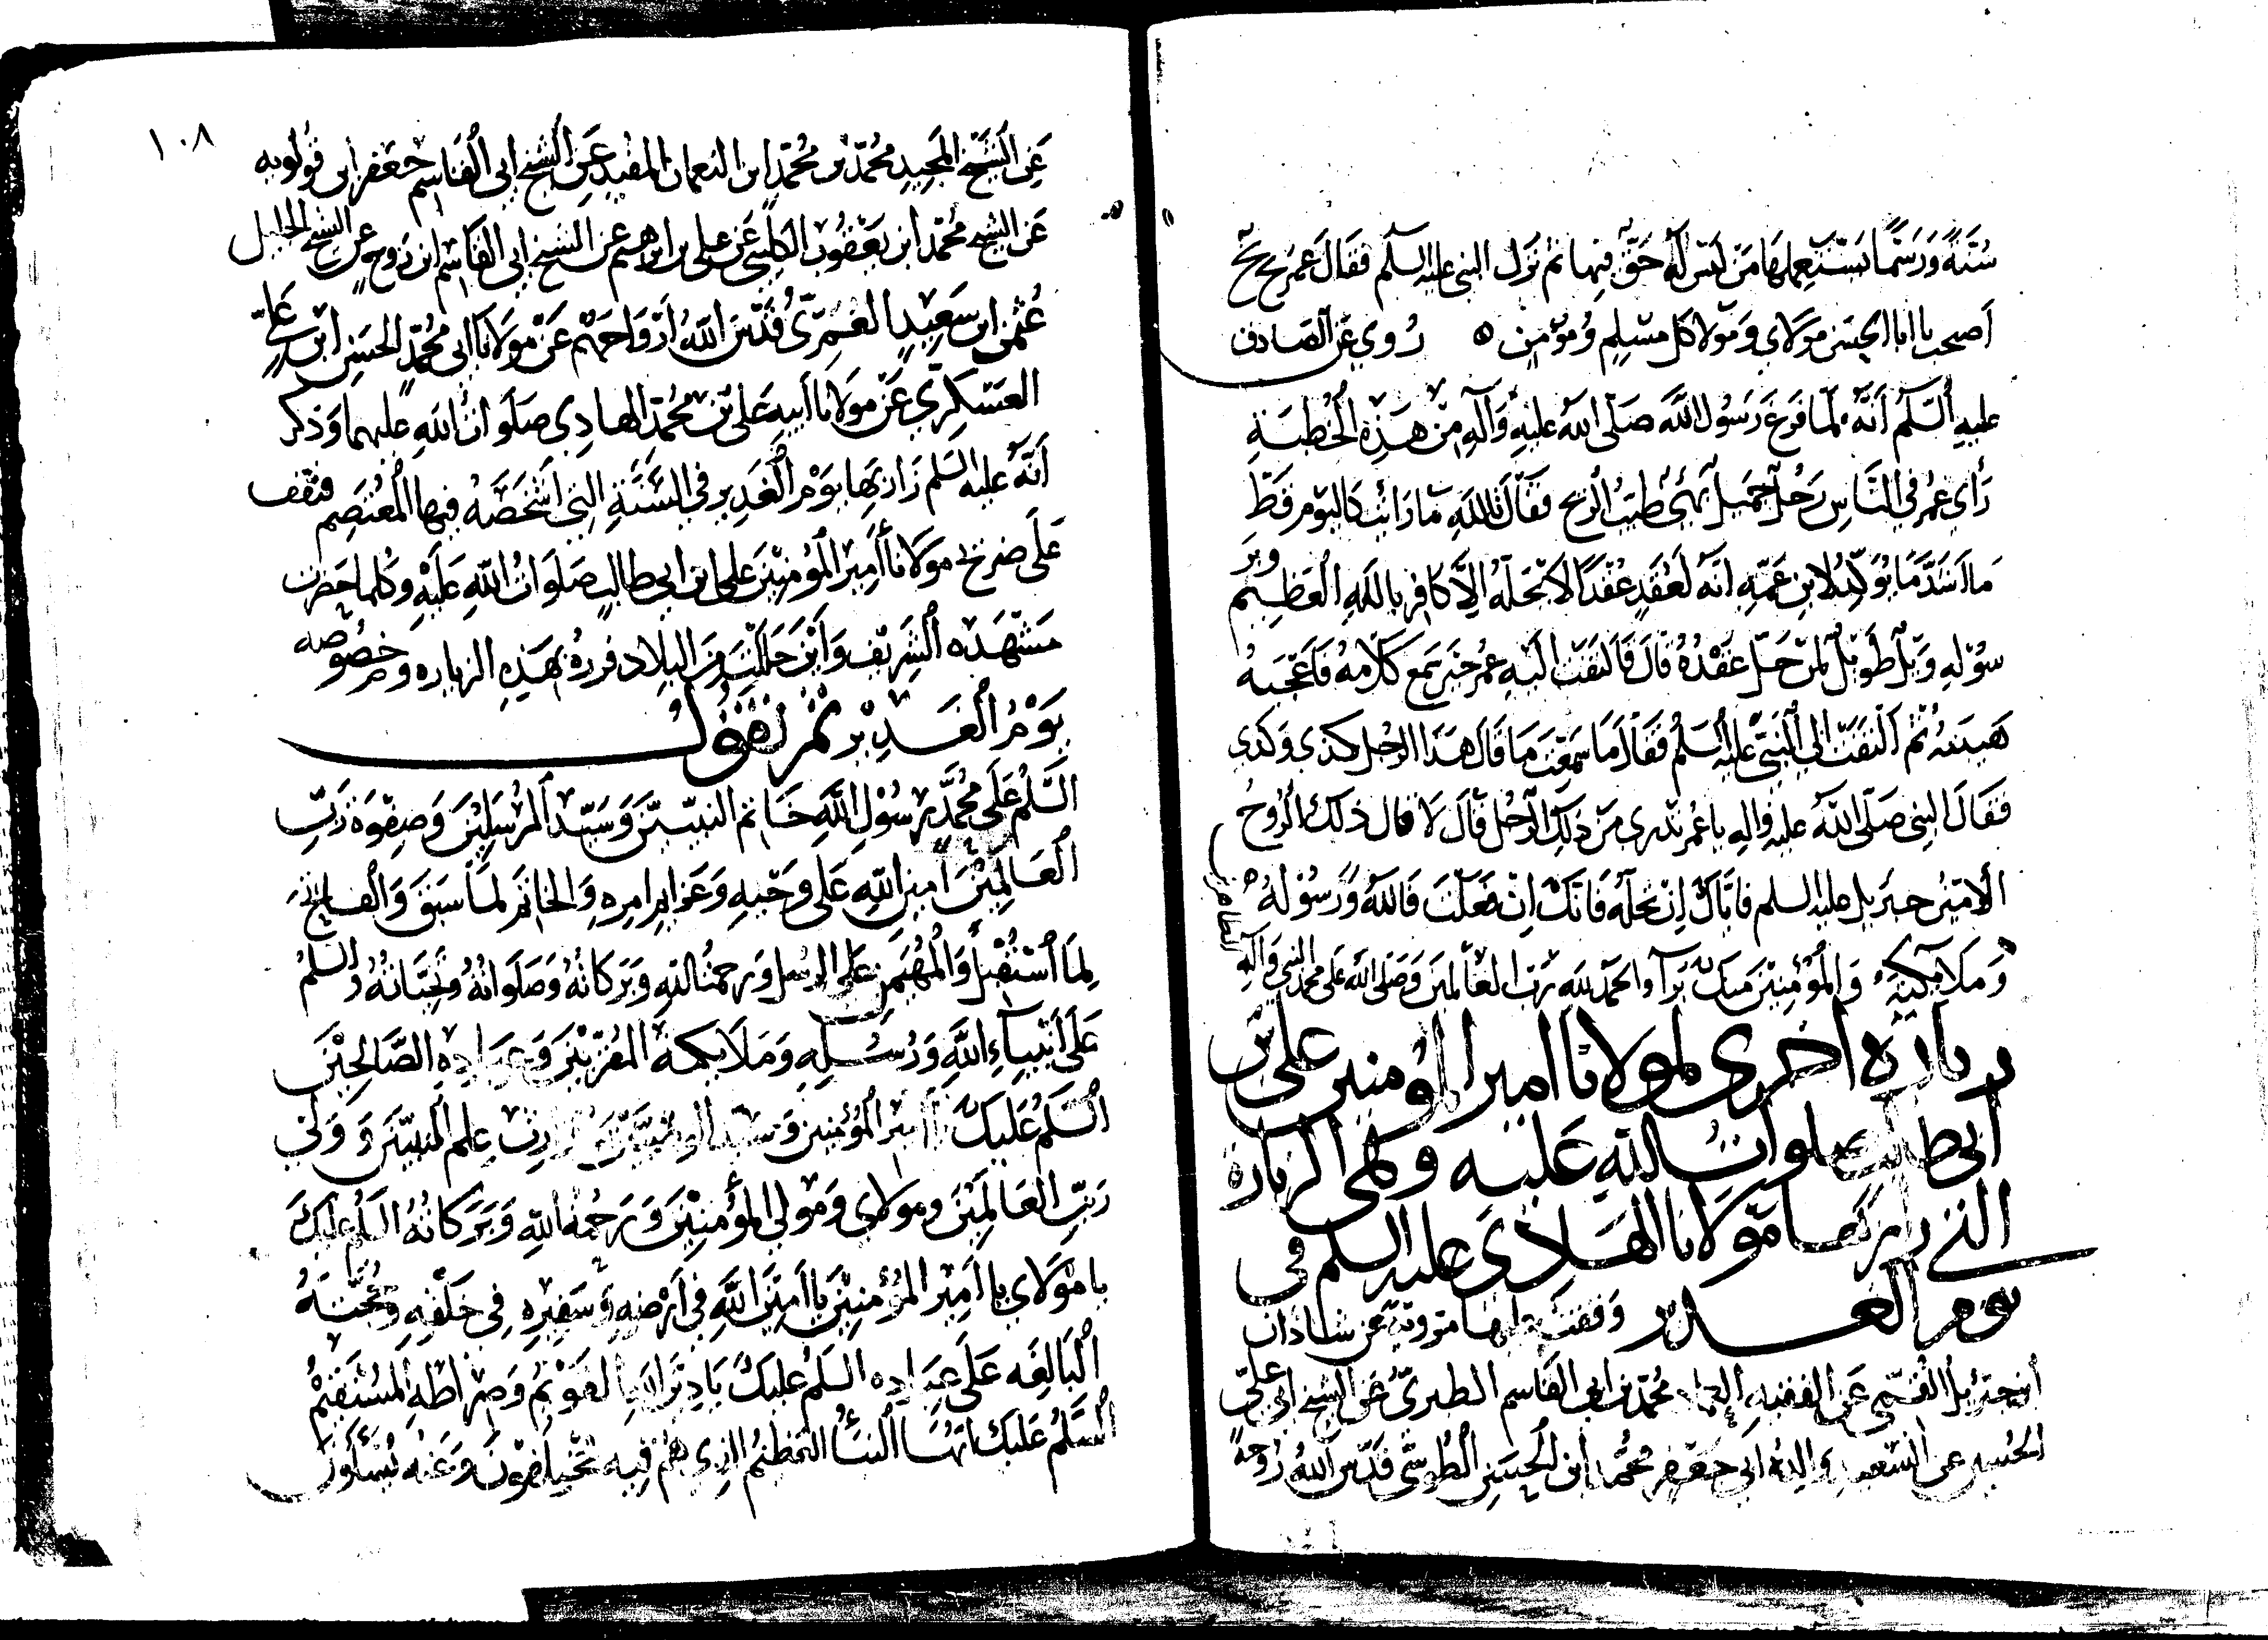 سُنَّةً وَرَسْمًا يَسْتَعِملهَا مَن لَيْسَ لَهُ حَقٌّ فيها ثم نزل النبي عليه السلم فقَالَ عمر بَخٍ بَخٍ
أصبحت يا ابا الحسَن مولاي وَمَولا كل مسْلِمٍ وَمُؤمِنٍ ه رُوِيَ عَن الصَادق
عليهِ السَّلمُ أنّهُ لمّا فرغ رَسُول اللّه صَلّى الله عليهِ وَآلهِ مِنْ هَذِهِ الخُطبَةِ
رَأى عُمر في النَّاسِ رَجُل جَميل بَهيّ طيّب الرّيح فقَالَ تالله مَا رَايْت كاليَوم قَطّ
مَا اَشَدَّ مَا يُؤكّد لابن عَمّهِ انّه لعُقِدَ عُقْدًا لا تحلّهُ اِلّا كافِر بِاللهِ العَظِيم
سُوْلهِ وَيْل طَويْل لمن حَلّ عَقْدهُ قال فَالتفت اليهِ عمر حين سَمع كَلامهُ فَاعْجَبهُ
هَيئته ثُم التَفَتَ الى النَّبيّ عليه السَّلم فقَالَ اَمَا سَمِعْتَ مَا قَال هَذَا الرجل كذى وَكذى
فقَالَ النبي صَلّى اللّهُ عليه وَالهِ يا عمر تدرى مَن ذَلكَ الرّجُل قَالَ لَا قال ذلك الرّوحُ
الأمَيْن جبرئيل عليه السلم فايّاك اَنْ تحُلّهُ فَانّكَ اِنْ فعَلتَ فَاللّه وَرَسُوْلهُ
وَمَلَائكتهُ وَالمُؤمنِيْنَ منك بَرَآء الحَمد لله رَبّ العَالمين وَصَلى الله على محمد النبي وآله
الطاهرين
زيارة اخرى لمولانا امير المؤمنين على بن
أبي طالب صلوات الله عَليْه وهي الزيارة
التي زار بها مَولانا الهَادِيَ عليه السلم في
يوم الغدير وَقفتُ عليها مرويّة عَن شاذان
ابن جبرئيل القُمّي عَن الفقيه العماد محمّد بن ابي القَاسم الطبريّ عَن الشيخ ابي عَليّ
الحُسين عن السَّعيد وَالدِهِ ابي جَعْفر محمّد ابن الحُسَين الطُوسيّ قدّس اللهُ رُوحهُ
١٠٨
عَنِ الشَيْخ المجيدِ محُمّد بن محُمّد ابن النعمان المفيد عَنِ الشيخ ابي القَاسم جعفر ابن قولويه
عَن الشيخ محُمّد ابن يَعْقوُب الكليني عَن على بن ابرهيم عن الشيخ ابي القاسم ابن رَوح عن الشيخ الجليل
عُثمن ابن سَعِيْدٍ العَمرّىّ قدّسَ اللّهُ أرْوَاحهُم عَنْ مولانا ابى محُمّد الحسن ابن عَليّ
العَسْكَرِي عَنْ مولانا ابيهِ عَلىّ بْن محُمّد الهَادِي صَلَوات الله عليهما وَذكر
أنّهُ عليه السَلم زَار بِهَا يَوْم الغَدِير فى السَّنَةِ التي اشْخَصَهُ فيها المُعْتصِم فتقف
عَلَى ضريح مَولانا أمِيْر المُؤمنِيْنَ على ابن ابي طالبٍ صَلوَاتُ اللهِ عَليْهِ وكلما حضرت
مَشْهَدَه الشَرِيْف وَأيْن حَللْتَ مِنَ البلاد فزرهُ بهَذِهِ الزياره وخصوصه
يَوْمُ الغَدِيْر ثم تقُولُ
السَّلمُ عَلَى محُمَّدٍ رسُوْلِ اللَّهِ خَاتم النبيّيْنَ وَسَيّد المُرْسَلِيْنَ وَصِفْوَة رَبِّ
العَالَمِيْنَ امِين اللهِ عَلى وَحْيهِ وَعَزائم امرهِ وَالخَاتم لمَا سَبَقَ وَالفاتح
لِمَا اسْتُقْبلَ وَالمُهَيمنِ عَلى ذلك ورحمتُ اللهِ وَبَرَكاتهُ وَصَلوَاتهُ وَتحِيّاتهُ وَالسَّلمُ
عَلَى أنْبيآءِ اللهِ وَرُسُلِهِ وَمَلَايكته المقرّبيْنَ وَعِبَادِهِ الصَّالحِيْنَ
السَّلمُ عَليْكَ يا امير المُؤمنين وَسيد الوصيّين وَوارث علم النبيّيْنَ وَوَلِيّ
رَبّ العَالَمِيْنَ وَمولاي وَمَولى المؤمنِيْنَ وَرَحمة اللهِ وَبَرَكَاتهُ السَّلمُ عليْكَ
يا مَوْلَاي يا امِيْر المُؤمِنيْنَ يا امِيْنَ اللّهِ فى أرْضهِ وَسَفيْرِه فِي خَلْقِهِ وَحُجَّتهُ
البَالِغَه عَلَى عِبَادِه السَّلمُ عليكَ يَا دِيْن اللهِ القَوِيْم وَصِرَاطه المُسْتَقِيْم
السَّلمُ عَليكَ ايّهَا النبَأ العَظيمُ الذِي هُم فِيهِ مُخْتلِفُوْنَ وَعَنْه يُسْأَلُوْنَ